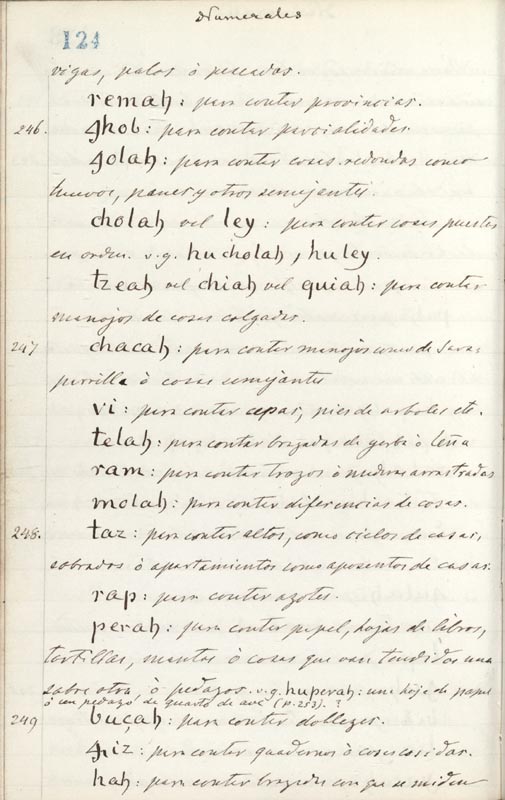 Numerales
124
vigas, palos ò pescados.
remah: para contar provincias.
246. ꜭhob: para contar parcialidades.
ꜭolah: para contar cosas redondas como
huevos, panes y otros semejantes.
cholah vel ley: para contar cosas puestas
en orden. v.g. hucholah, huley.
tzeah vel chiah vel quiah: para contar
manojos de cosas colgadas.
247 chacah: para contar manojos como de Sarza-
parrilla ò cosas semejantes
vi: para contar cepas, pies de arboles etc.
telah: para contar brazadas de yerba ò leña
ram: para contar trozos ò maderas arrastradas
molah: para contar diferencias de cosas.
248. taz: para contar altos, como cielos de casas,
sobrados ò apartamientos como aposentos de casas.
rap: para contar azotes.
perah: para contar papel, hojas de libros,
tortillas, mantas ò cosas que van tendidas una
sobre otra, ò pedazos. v.g. huperah: una hoja de papel
ò un pedazo de quarto de ave (p. 253). ?
249 buçah: para contar dobleges.
ꜭiz: para contar quadernos ò cosas cosidas.
hah: para contar brazadas con que se miden